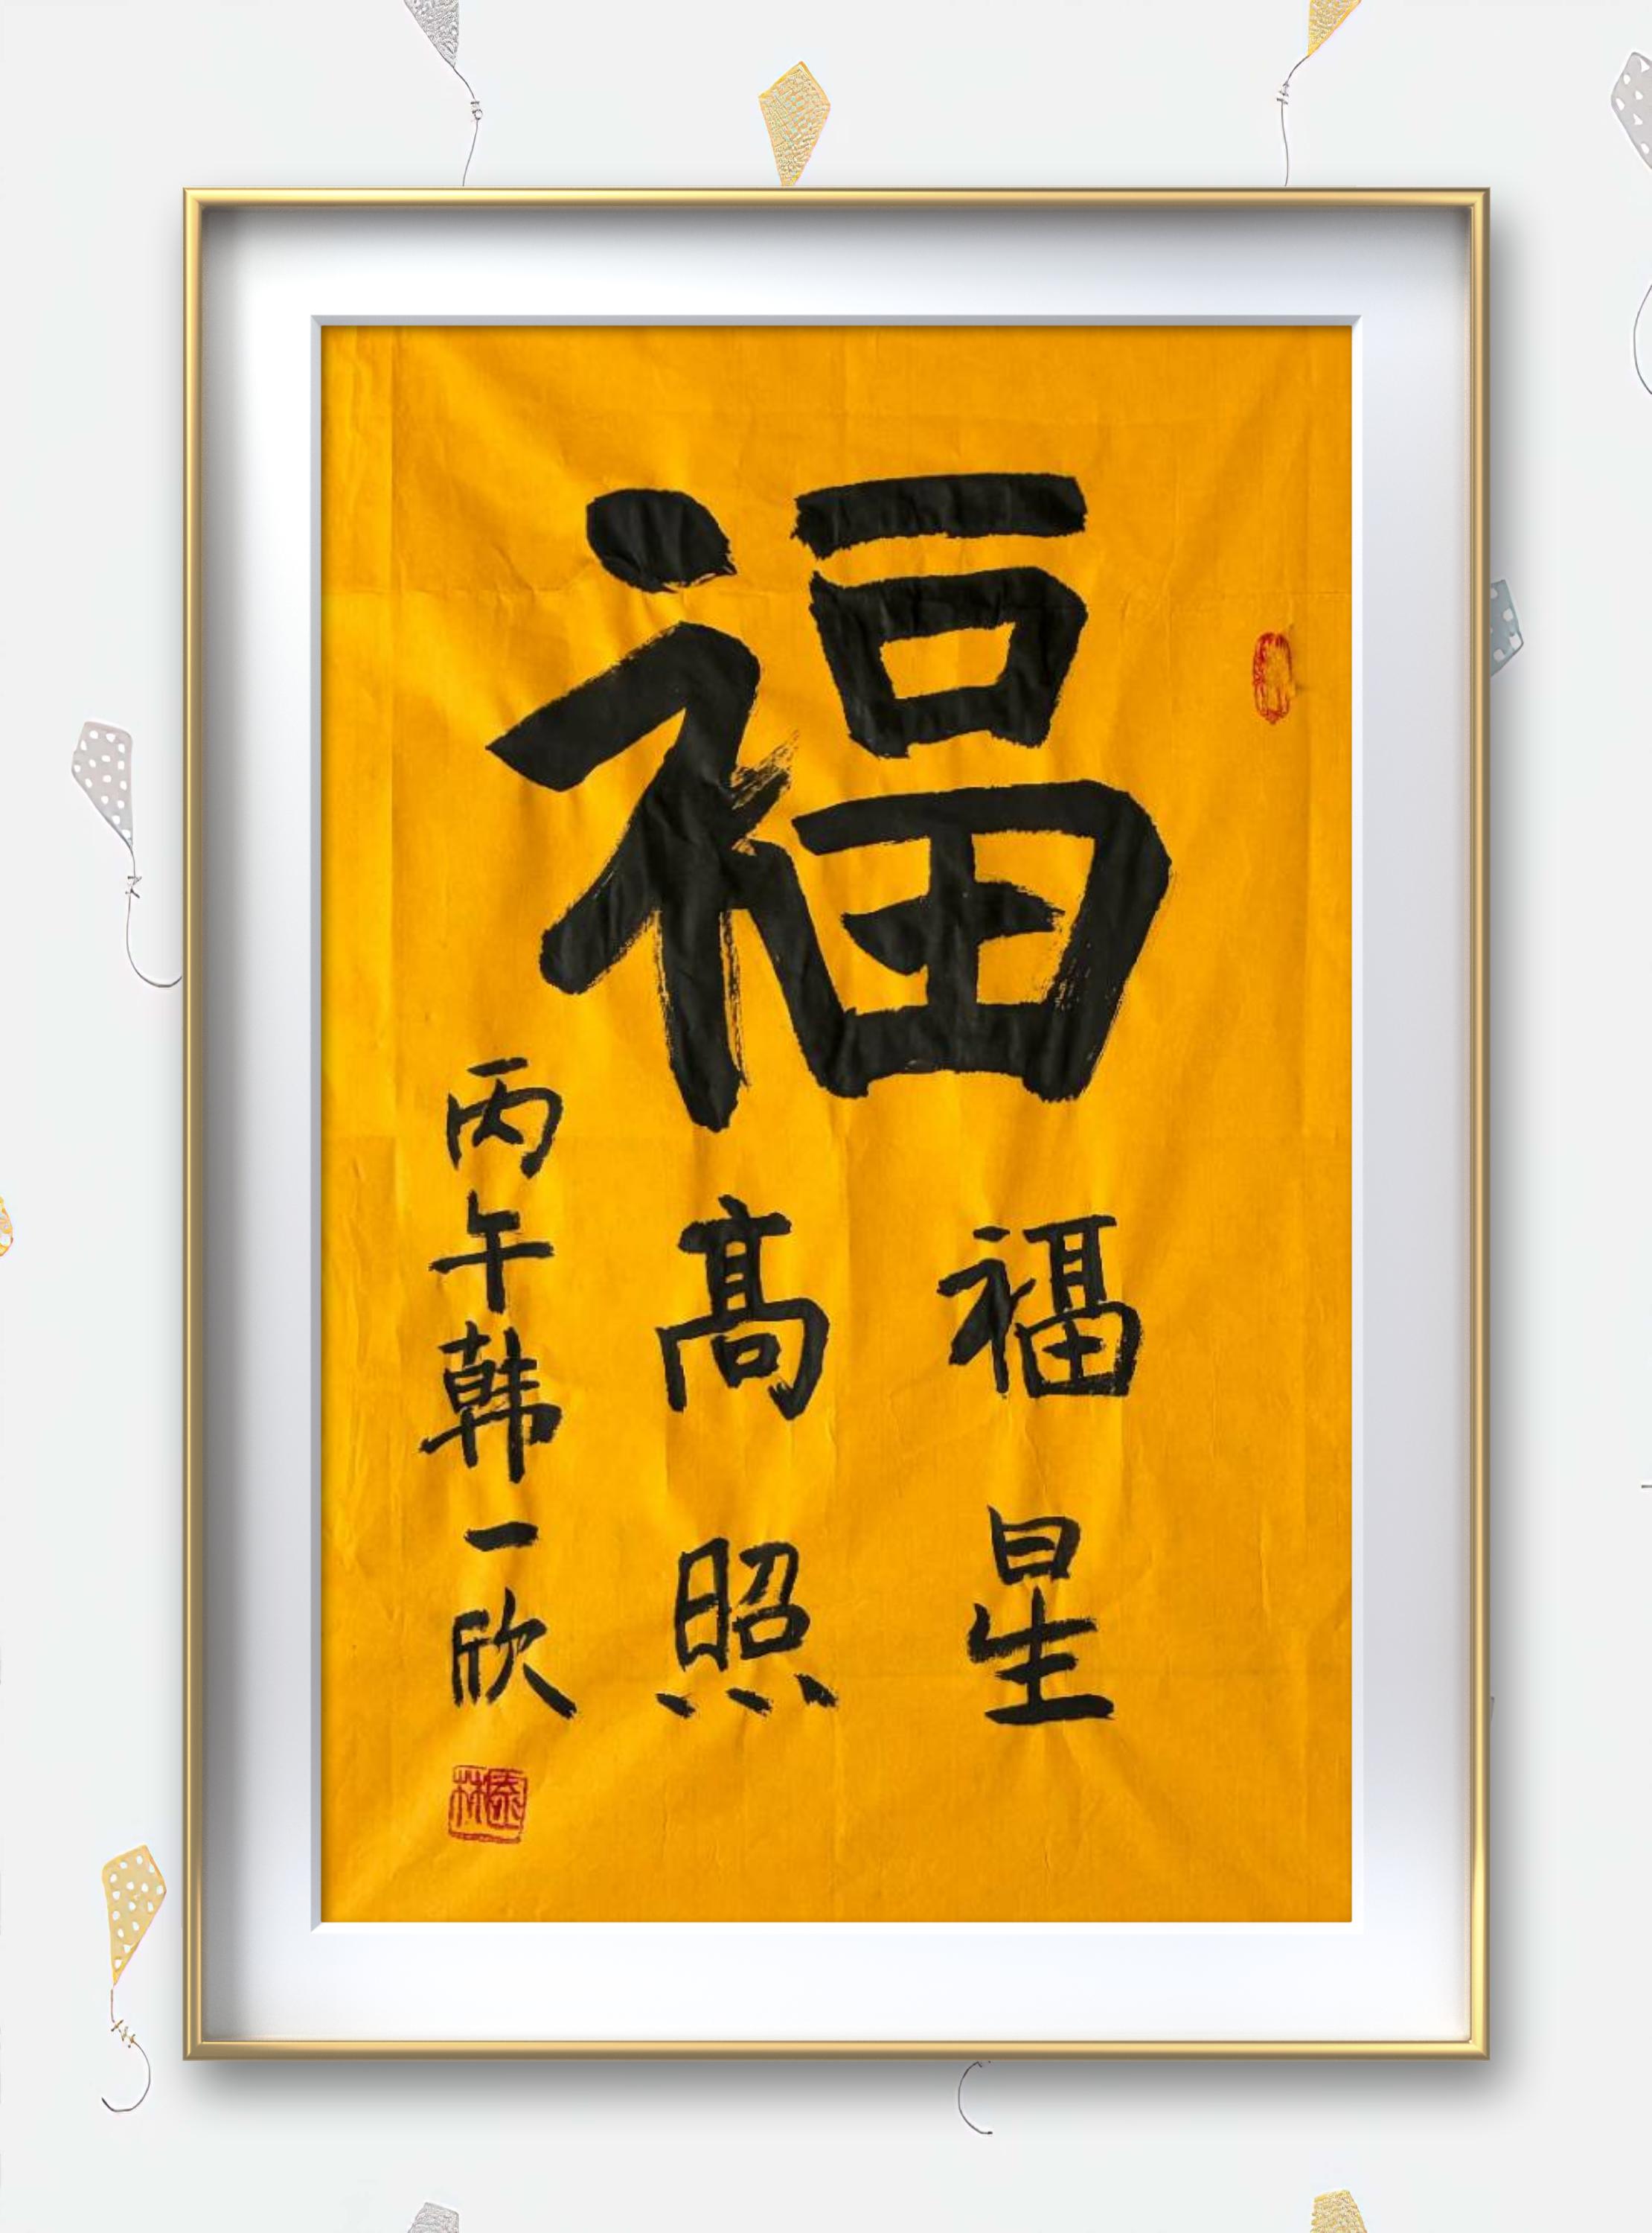 福
福星
高照
丙午韩一欣